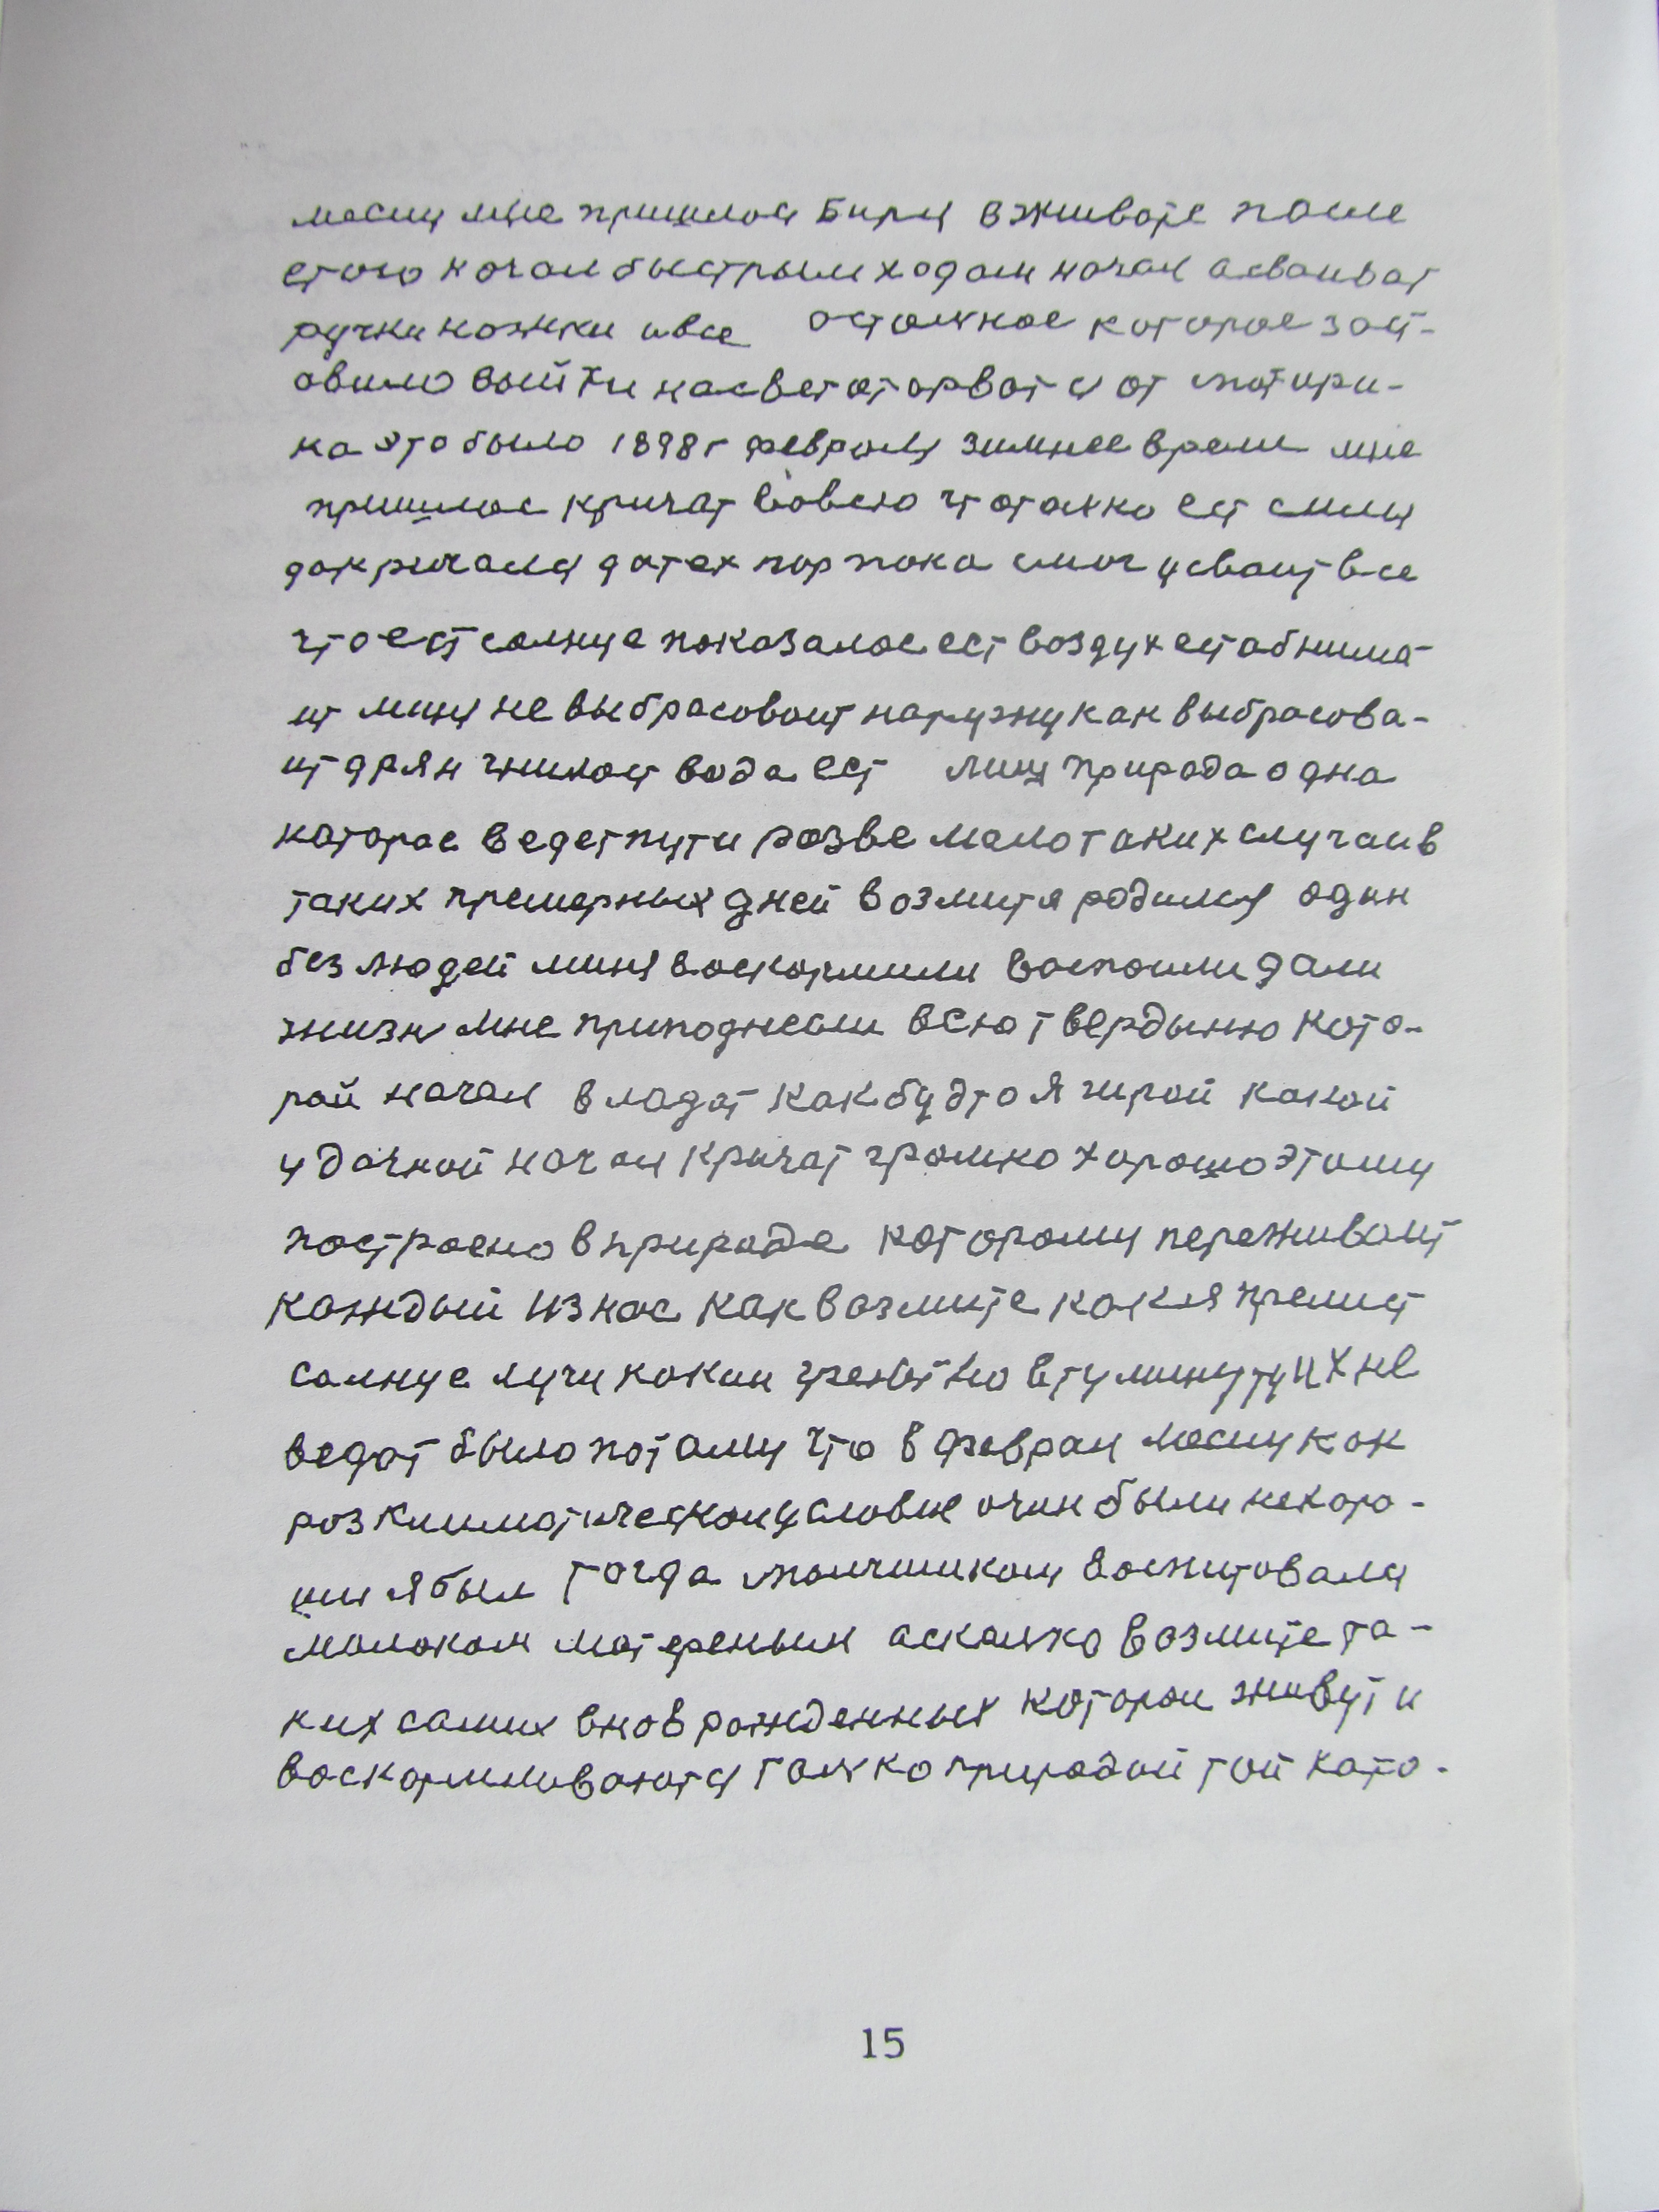 месиц мне пришлос бирч вживоте после
етого начал быстрым ходом начал асваиват
ручки ножки ивсе осталное которое заст-
авило выйти насвет оторватс от матири-
ка это было 1898г феврал зимнее время мне
пришлос кричат вовсю что толко ест силы
дакричалс датех пор пока смог усваит все
что ест солнце показалос ест воздух ест абнима-
ит миня не выбрасоваит наружу как выбрасова-
ит дрян гнилой вода ест лиш природа одна
каторае ведет пути розве мало таких случаив
таких примерных дней возмит я родилcя один
без людей миня воскормили воспоили дали
жизн мне приподнесли всю твердыню кото-
рай начал владат как будто я гирой какой
удачной начал кричат громко хорошо этому
построено в природе которому переживаит
каждый из нас как возмите какля премит
солнце лучи какии греют но вту минуту их не
ведат было потому что в феврал месиц как
роз климатическом условие очин были нехоро-
ши я был тогда малчиком воспитовалс
молоком матереным асколко возмите та-
ких самих внов рожденных которои живут и
воскормливаютс толко природай той като-
15